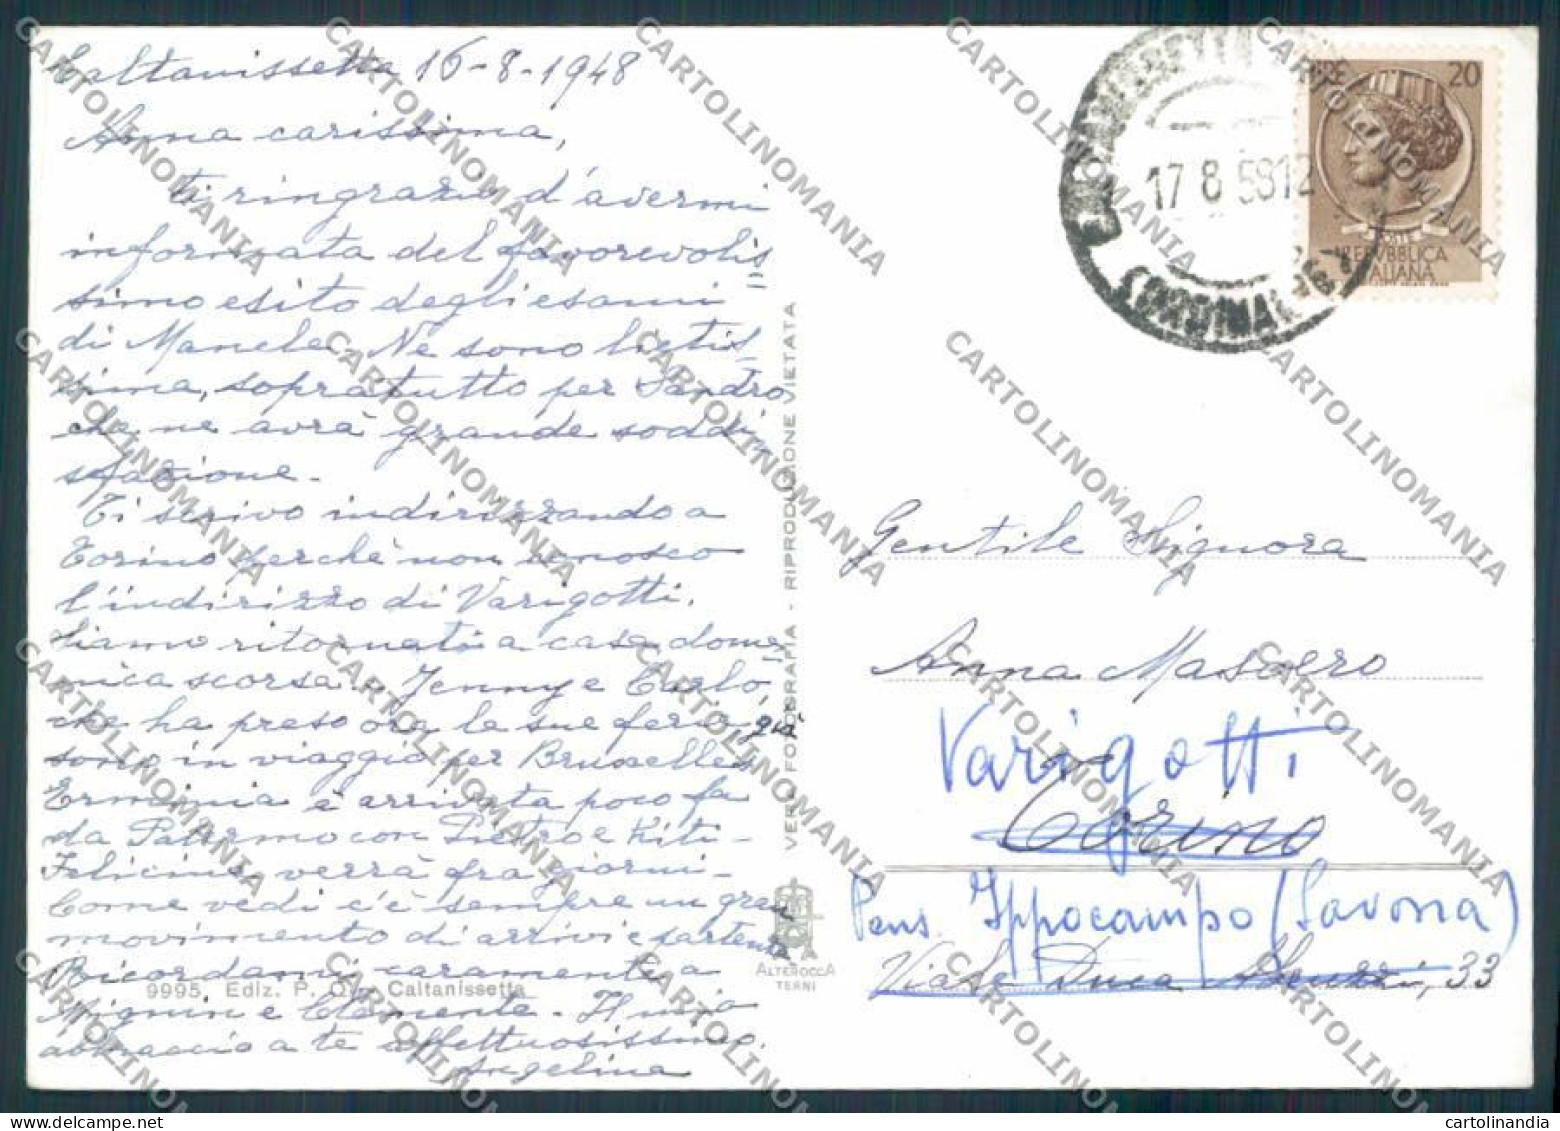 Caltanissetta 16-8-1948
Anna carissima,
ti ringrazio d'avermi
informata del favorevolis=
simo esito degli esami
di Manela. Ne sono lietis=
sima, sopratutto per Sandro
che ne avrà grande soddi=
sfazione.
Ti scrivo indirizzando a
Torino perchè non conosco
l'indirizzo di Varigotti.
Siamo ritornati a casa dome=
nica scorsa. Jenny e Carlo,
che ha preso ora le sue ferie, già
sono in viaggio per Bruxelles
Erminia è arrivata poco fa
da Palermo con Pietro e Kiti-
Felicina verrà fra giorni-
Come vedi c'è sempre un gran
movimento di arrivi e partenze
Ricordami caramente a
Mignin e Clemente. Il mio
abbraccio a te affettuosissimo.
Angelina
9995. Ediz. P. Caltanissetta
VERA FOTOGRAFIA - RIPRODUZIONE VIETATA
ALTEROCCA
TERNI
LIRE 20
REPVBBLICA
ITALIANA
17 8 58 12
Gentile Signora
Anna Masoero
Varigotti
Torino
Pens. Ippocampo (Savona)
Viale Duca Abruzzi, 33
CARTOLINOMANIA
cartolinandia